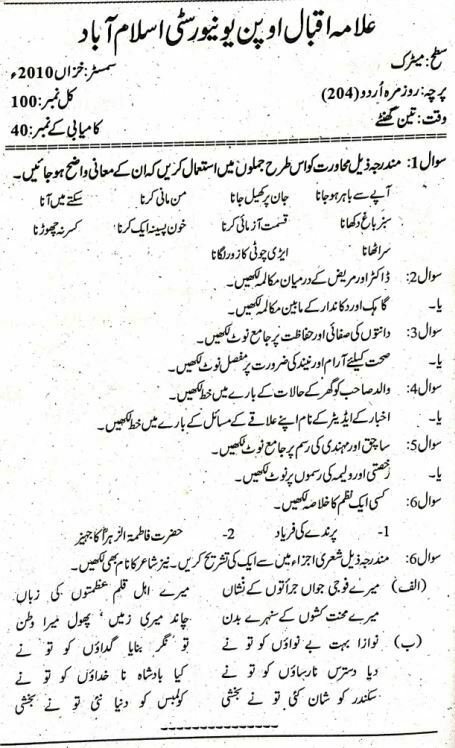 علامہ اقبال اوپن یونیورسٹی اسلام آباد
سطح: میٹرک سمسٹر: خزاں 2010ء
پرچہ: روزمرہ اُردو (204) کل نمبر: 100
وقت: تین گھنٹے کامیابی کے نمبر: 40
سوال 1: مندرجہ ذیل محاورت کو اس طرح جملوں میں استعمال کریں کہ ان کے معانی واضح ہو جائیں۔
آپے سے باہر ہو جانا جان پر کھیل جانا من مانی کرنا سکتے میں آنا
سبز باغ دکھانا قسمت آزمائی کرنا خون پسینہ ایک کرنا کسر نہ چھوڑنا
سر اٹھانا ایڑی چوٹی کا زور لگانا
سوال 2: ڈاکٹر اور مریض کے درمیان مکالمہ لکھیں۔
یا۔ گاہک اور دکاندار کے مابین مکالمہ لکھیں۔
سوال 3: دانتوں کی صفائی اور حفاظت پر جامع نوٹ لکھیں۔
یا۔ صحت کیلئے آرام اور نیند کی ضرورت پر مفصل نوٹ لکھیں۔
سوال 4: والد صاحب کو گھر کے حالات کے بارے میں خط لکھیں۔
یا۔ اخبار کے ایڈیٹر کے نام اپنے علاقے کے مسائل کے بارے میں خط لکھیں۔
سوال 5: ساچق اور مہندی کی رسم پر جامع نوٹ لکھیں۔
یا۔ رُخصتی اور ولیمہ کی رسموں پر نوٹ لکھیں۔
سوال 6: کسی ایک نظم کا خلاصہ لکھیں۔
1- پرندے کی فریاد 2- حضرت فاطمۃ الزہراؓ کا جہیز
سوال 6: مندرجہ ذیل شعری اجزاء میں سے ایک کی تشریح کریں۔ نیز شاعر کا نام بھی لکھیں۔
(الف) میرے فوجی جواں جراتوں کے نشاں میرے اہل قلم عظمتوں کی زباں
میرے محنت کشوں کے سنہرے بدن چاند میری زمیں' پھول میرا وطن
(ب) نوازا بہت بے نواؤں کو تو نے تو نگر بنایا گداؤں کو تو نے
دیا دسترس نارساؤں کو تو نے کیا بادشاہ نا خداؤں کو تو نے
سکندر کو شان کئی تو نے بخشی کولمبس کو دنیا نئی تو نے بخشی